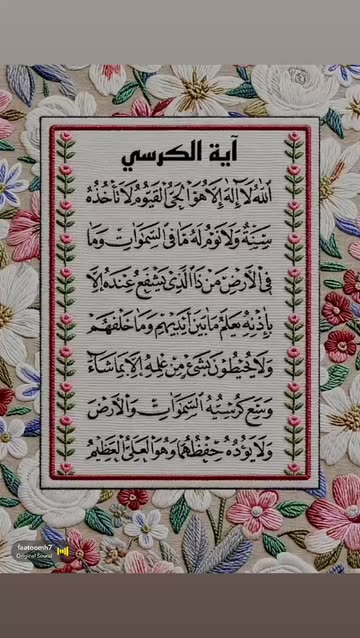 آية الكرسي
اللَّهُ لَا إِلَٰهَ إِلَّا هُوَ الْحَيُّ الْقَيُّومُ لَا تَأْخُذُهُ
سِنَةٌ وَلَا نَوْمٌ لَهُ مَا فِي السَّمَوَاتِ وَمَا
فِي الْأَرْضِ مَنْ ذَا الَّذِي يَشْفَعُ عِنْدَهُ إِلَّا
بِإِذْنِهِ يَعْلَمُ مَا بَيْنَ أَيْدِيهِمْ وَمَا خَلْفَهُمْ
وَلَا يُحِيطُونَ بِشَيْءٍ مِنْ عِلْمِهِ إِلَّا بِمَا شَاءَ
وَسِعَ كُرْسِيُّهُ السَّمَوَاتِ وَالْأَرْضَ
وَلَا يَؤُدُهُ حِفْظُهُمَا وَهُوَ الْعَلِيُّ الْعَظِيمُ
faatoomh7
Original Sound